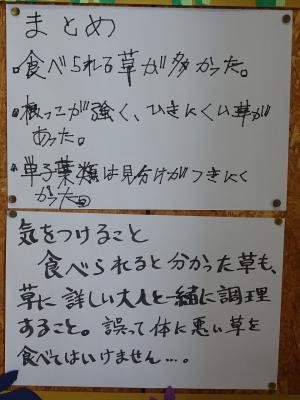 まとめ
・食べられる草が多かった。
・根っこが強く、ひきにくい草が
あった。
・単子葉類は見分けがつきにく
かった。
気をつけること
食べられると分かった草も、
草に詳しい大人と一緒に調理
すること。誤って体に悪い草を
食べてはいけません…。